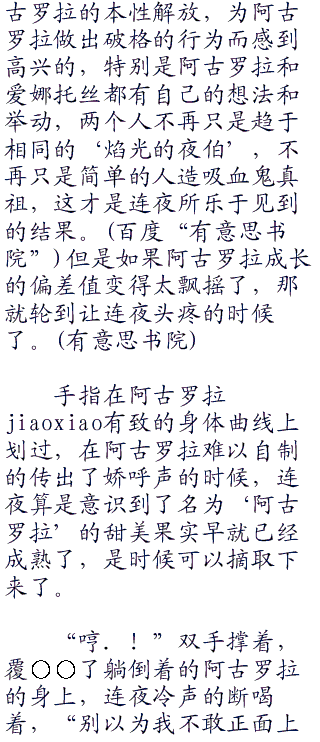 古罗拉的本性解放，为阿古
罗拉做出破格的行为而感到
高兴的，特别是阿古罗拉和
爱娜托丝都有自己的想法和
举动，两个人不再只是趋于
相同的‘焰光的夜伯’，不
再只是简单的人造吸血鬼真
祖，这才是连夜所乐于见到
的结果。(百度“有意思书
院”)但是如果阿古罗拉成长
的偏差值变得太飘摇了，那
就轮到让连夜头疼的时候
了。(有意思书院)
手指在阿古罗拉
jiaoxiao有致的身体曲线上
划过，在阿古罗拉难以自制
的传出了娇呼声的时候，连
夜算是意识到了名为‘阿古
罗拉’的甜美果实早就已经
成熟了，是时候可以摘取下
来了。
“哼．！”双手撑着，
覆○○了躺倒着的阿古罗拉
的身上，连夜冷声的断喝
着，“别以为我不敢正面上